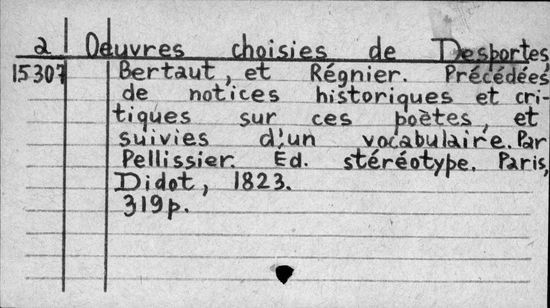 a Oeuvres choisies de Desportes,
15307 Bertaut, et Régnier. Précédées
de notices historiques et cri-
tiques sur ces poètes, et
suivies d'un vocabulaire. Par
Pellissier. Éd. stéréotype. Paris,
Didot, 1823.
319p.